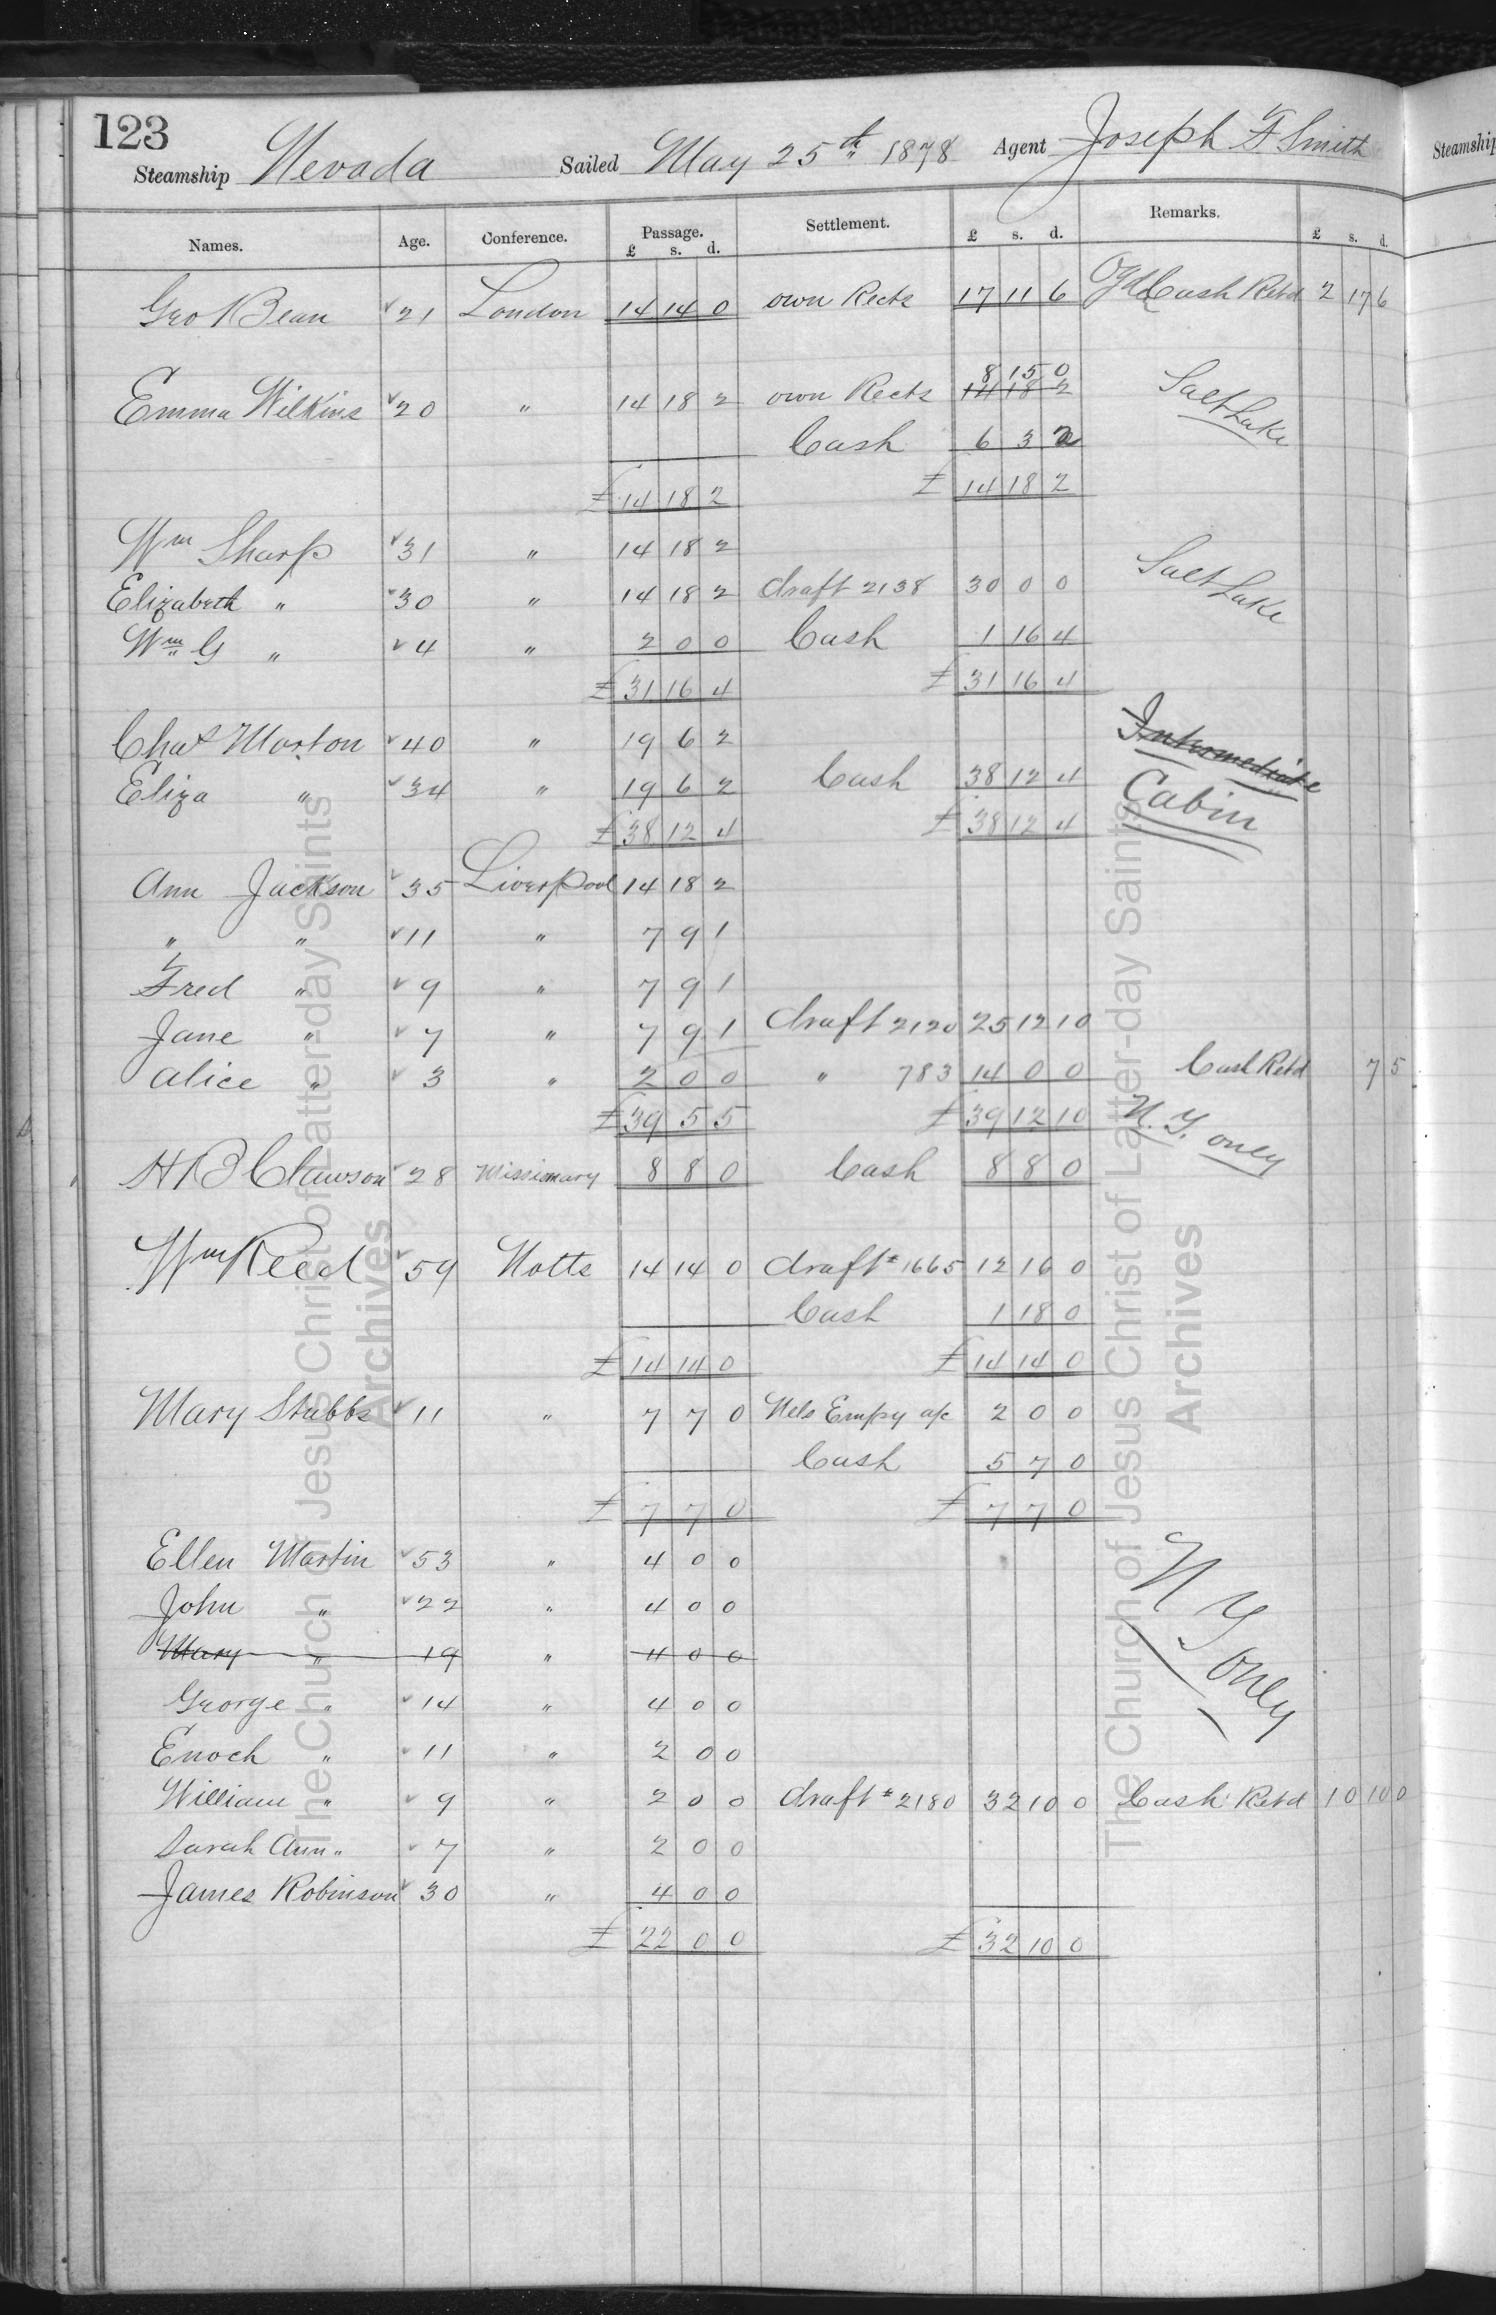 123
Steamship Nevada Sailed May 25th 1878 Agent Joseph F Smith
Names. Age. Conference. Passage. £ s. d. Settlement. £ s. d. Remarks. £ s. d.
Geo Bean 21 London 14 14 0 own Rects 17 11 6 Ogd Cash Retd 2 17 6
8 15 0
Emma Wilkins 20 " 14 18 2 own Rects 14 18 2 Salt Lake
Cash 6 3 2
£ 14 18 2 £ 14 18 2
Wm Sharp 31 " 14 18 2
Elizabeth " 30 " 14 18 2 draft 2138 30 0 0 Salt Lake
Wm G " 4 " 2 0 0 Cash 1 16 4
£ 31 16 4 £ 31 16 4
Chas Morton 40 " 19 6 2 Intermediate
Eliza " 34 " 19 6 2 Cash 38 12 4 Cabin
£ 38 12 4 £ 38 12 4
Ann Jackson 35 Liverpool 14 18 2
" " 11 " 7 9 1
Fred " 9 " 7 9 1
Jane " 7 " 7 9 1 draft 2120 25 12 10
Alice " 3 " 2 0 0 " 783 14 0 0 Cash Retd 7 5
£ 39 5 5 £ 39 12 10 N. Y. only
H B Clawson 28 Missionary 8 8 0 Cash 8 8 0
Wm Reed 59 Notts 14 14 0 draft # 1665 12 16 0
Cash 1 18 0
£ 14 14 0 £ 14 14 0
Mary Stubbs 11 " 7 7 0 Nels Empy a/c 2 0 0
Cash 5 7 0
£ 7 7 0 £ 7 7 0
Ellen Martin 53 " 4 0 0
John " 22 " 4 0 0 N Y only
Mary " 19 " 4 0 0
George " 14 " 4 0 0
Enoch " 11 " 2 0 0
William " 9 " 2 0 0 draft # 2180 32 10 0 Cash Retd 10 10 0
Sarah Ann " 7 " 2 0 0
James Robinson 30 " 4 0 0
£ 22 0 0 £ 32 10 0
The Church of Jesus Christ of Latter-day Saints
Archives
The Church of Jesus Christ of Latter-day Saints
Archives
Steamship